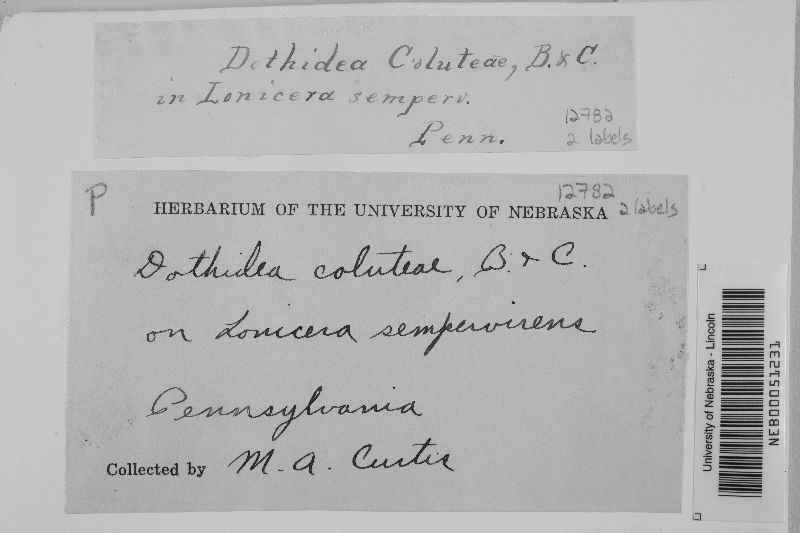 Dothidea Coluteae, B. & C.
in Lonicera semperv.
Penn.
12782
2 labels
P
12782
HERBARIUM OF THE UNIVERSITY OF NEBRASKA 2 labels
Dothidea coluteae, B. & C.
on Lonicera sempervirens
Pennsylvania
Collected by M. A. Curtis
University of Nebraska - Lincoln
NEB00051231